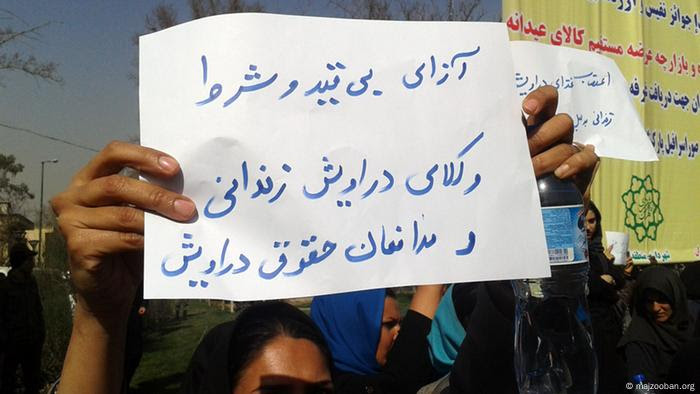 آزای بی قید و شرط
وکلای دراویش زندانی
و مدافعان حقوق دراویش
اعتصاب غذای دراویش
زندانی به دلیل
جوائز نفیس و
و بازارچه عرضه مستقیم کالای عیدانه
جهت دریافت غرفه
شهرداری منطقه
© majzooban.org